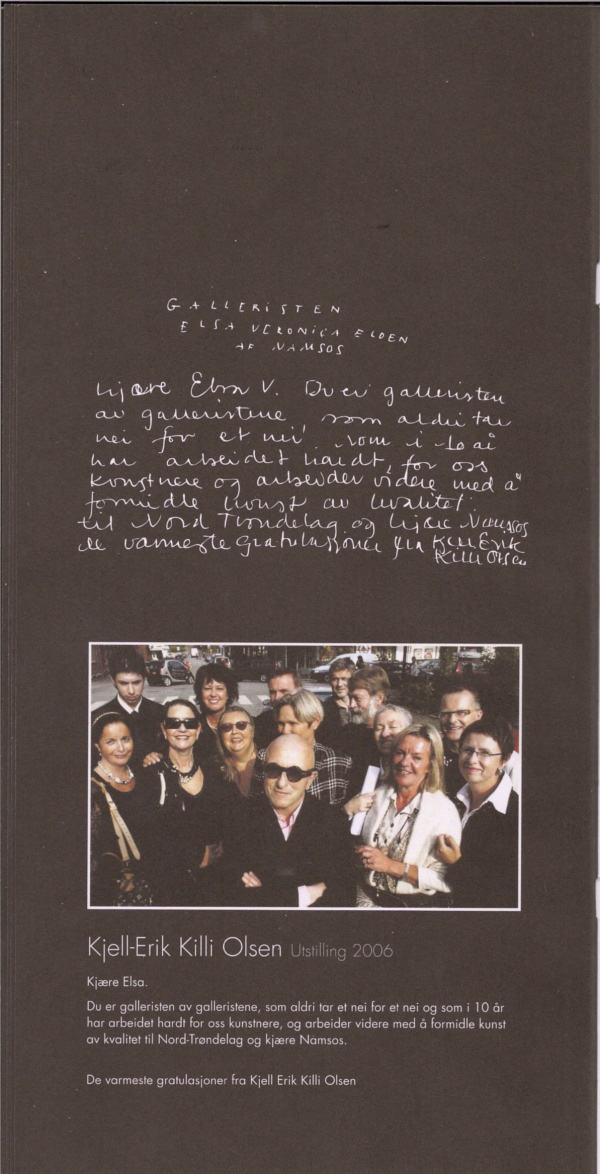 GALLERISTEN
ELSA VERONICA ELDEN
AF NAMSOS
kjære Elsa V. Du er galleristen
av galleristene, som aldri tar
nei for et nei, som i 10 år
har arbeidet hardt, for oss
kunstnere og arbeider videre med å
formidle kunst av kvalitet
til Nord Trøndelag og kjære Namsos
de varmeste gratulasjoner fra Kjell Erik
Killi Olsen
Kjell-Erik Killi Olsen Utstilling 2006
Kjære Elsa.
Du er galleristen av galleristene, som aldri tar et nei for et nei og som i 10 år
har arbeidet hardt for oss kunstnere, og arbeider videre med å formidle kunst
av kvalitet til Nord-Trøndelag og kjære Namsos.
De varmeste gratulasjoner fra Kjell Erik Killi Olsen